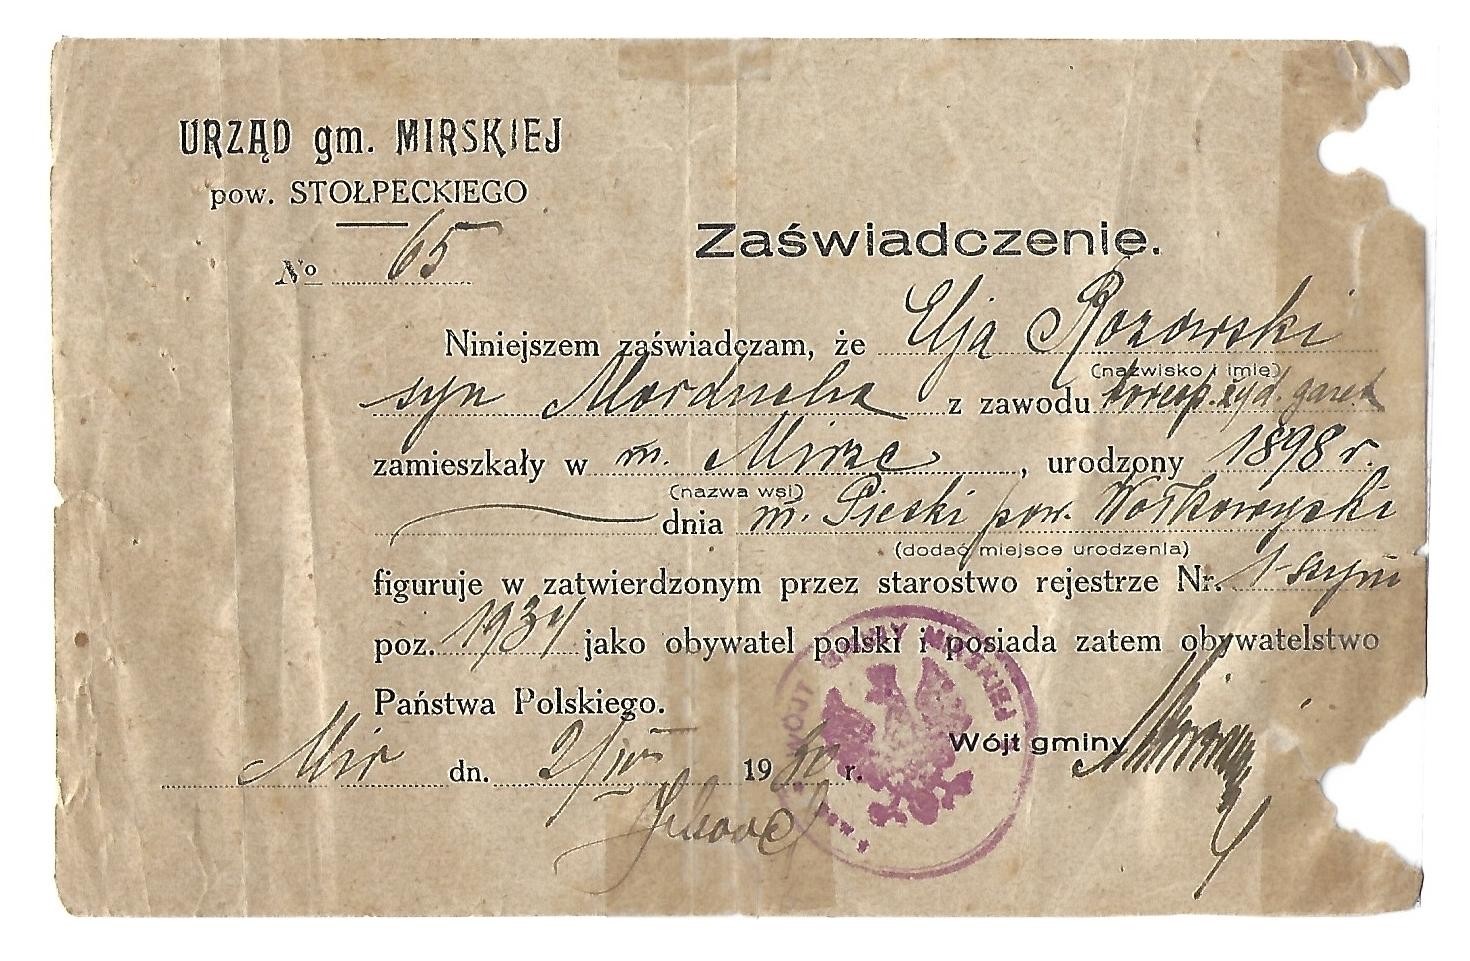 URZĄD gm. MIRSKIEJ
pow. STOŁPECKIEGO
No 65
Zaświadczenie.
Niniejszem zaświadczam, że Elja Rozowski
(nazwisko i imię)
syn Morducha z zawodu koresp. żyd. gazet
zamieszkały w m. Mirze, urodzony 1898 r.
(nazwa wsi)
dnia m. Pieski pow. Wołkowyski
(dodać miejsce urodzenia)
figuruje w zatwierdzonym przez starostwo rejestrze Nr. 1-szym
poz. 1934 jako obywatel polski i posiada zatem obywatelstwo
Państwa Polskiego.
Wójt gminy
Mir dn. 2/IV 1930 r.
WÓJT GMINY MIRSKIEJ